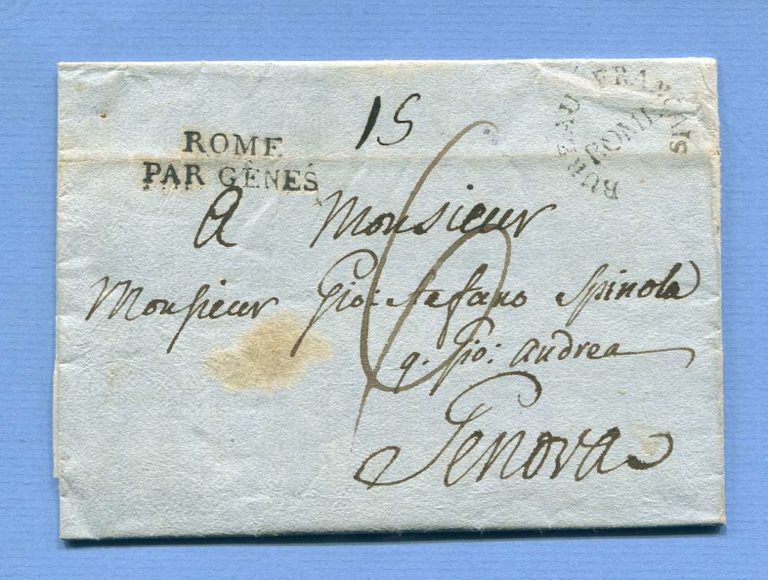 15
BUREAU FRANÇAIS
ROME
ROME
PAR GÈNES
6
A Monsieur
Monsieur Gio: Stefano Spinola
q. Gio: Andrea
Genova